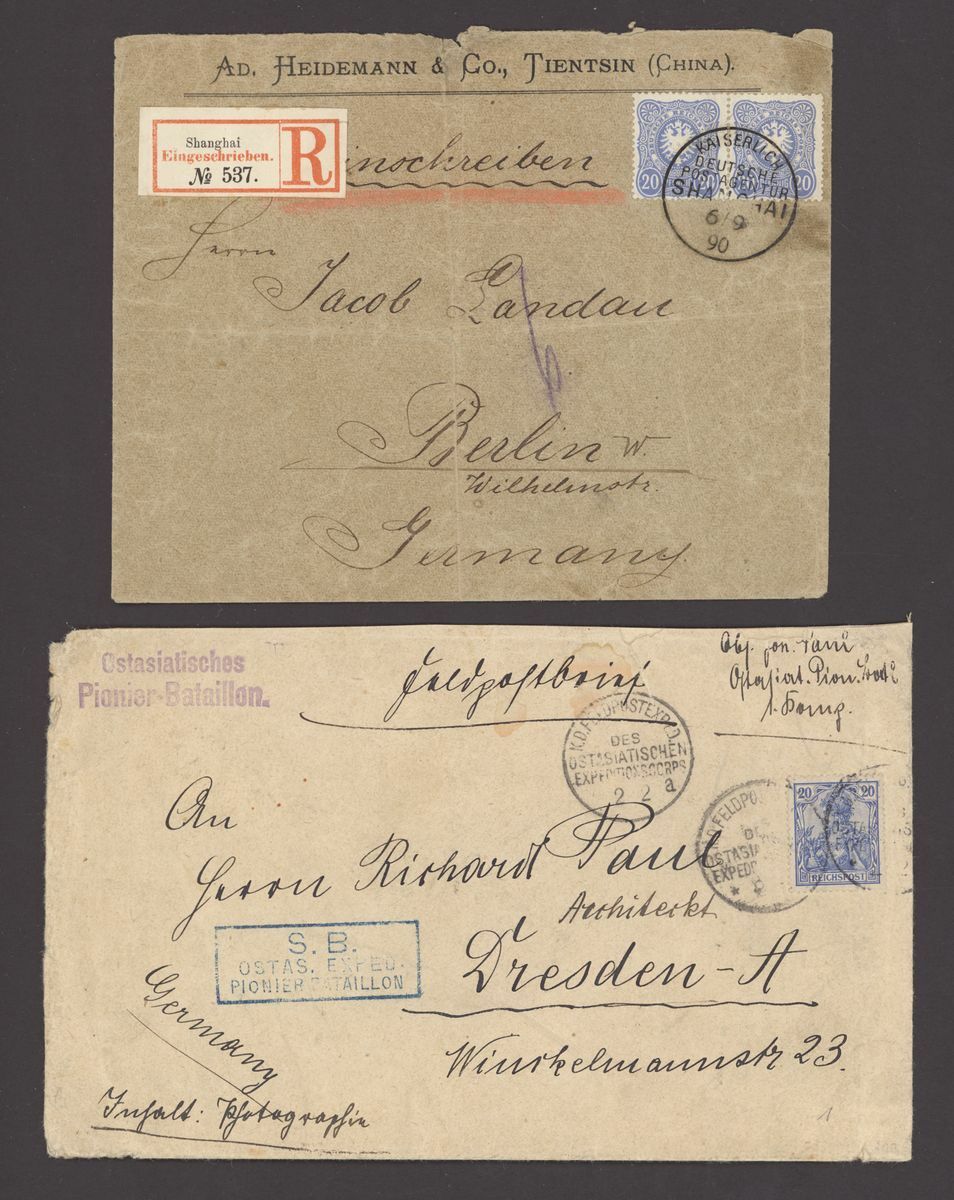 AD. HEIDEMANN & CO., TIENTSIN (CHINA).
Shanghai
Eingeschrieben.
№ 537.
R
inschreiben
20 20
KAISERLICH
DEUTSCHE
POSTAGENTUR
SHANGHAI
6/9
90
Herrn
Jacob Landau
Berlin W.
Wilhelmstr.
Germany
Ostasiatisches
Pionier-Bataillon.
Feldpostbrief
Ostasiat. Pion. Batl
1. Komp.
K.D. FELDPOSTEXPED.
DES
OSTASIATISCHEN
EXPEDITIONSCORPS
2 2 a
20 20
REICHSPOST
K.D. FELDPO
DES
OSTASIA
EXPED
OSTA
EXPE
An
Herrn Richard Paul
Architeckt
Dresden-A
Winckelmannstr 23.
S. B.
OSTAS. EXPED.
PIONIER BATAILLON
Germany
Inhalt: Photographie
1